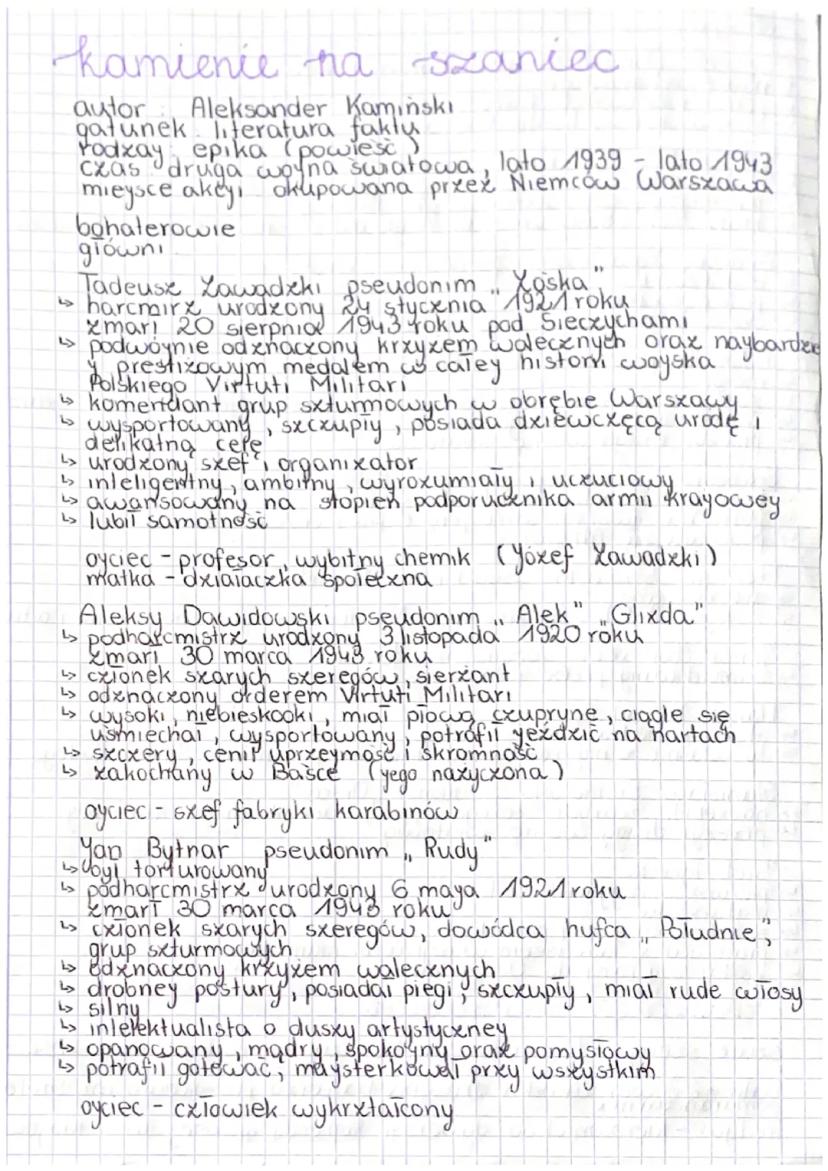 kamienie na szaniec
autor: Aleksander Kamiński
gatunek: literatura faktu
rodzaj: epika (powieść)
czas: druga wojna światowa, lato 1939 - lato 1943
miejsce akcji: okupowana przez Niemców Warszawa
bohaterowie
główni:
Tadeusz Zawadzki pseudonim „Zośka"
↳ harcmirz urodzony 24 stycznia 1921 roku
zmarł 20 sierpnia 1943 roku pod Sieczychami
↳ podwójnie odznaczony krzyżem walecznych oraz najbardzie
j prestiżowym medalem w całej historii wojska
Polskiego Virtuti Militari
↳ komendant grup szturmowych w obrębie Warszawy
↳ wysportowany, szczupły, posiada dziewczęcą urodę i
delikatną cerę
↳ urodzony szef i organizator
↳ inteligentny, ambitny, wyrozumiały i uczuciowy
↳ awansowany na stopień podporucznika armii krajowej
↳ lubił samotność
ojciec - profesor, wybitny chemik (Józef Zawadzki)
matka - działaczka społeczna
Aleksy Dawidowski pseudonim „Alek" „Glizda"
↳ podharcmistrz urodzony 3 listopada 1920 roku
zmarł 30 marca 1943 roku
↳ członek szarych szeregów, sierżant
↳ odznaczony orderem Virtuti Militari
↳ wysoki, niebieskooki, miał płową czuprynę, ciągle się
uśmiechał, wysportowany, potrafił jeździć na nartach
↳ szczery, cenił uprzejmość i skromność
↳ zakochany w Baśce (jego nażyczona)
ojciec - szef fabryki karabinów
Jan Bytnar pseudonim „Rudy"
↳ był torturowany
↳ podharcmistrz urodzony 6 maja 1921 roku
zmarł 30 marca 1943 roku
↳ członek szarych szeregów, dowódca hufca „Południe",
grup szturmowych
↳ odznaczony krzyżem walecznych
↳ drobnej postury, posiadał piegi, szczupły, miał rude włosy
↳ silny
↳ intelektualista o duszy artystycznej
↳ opanowany, mądry, spokojny oraz pomysłowy
↳ potrafił gotować, majsterkował przy wszystkim
ojciec - człowiek wykształcony